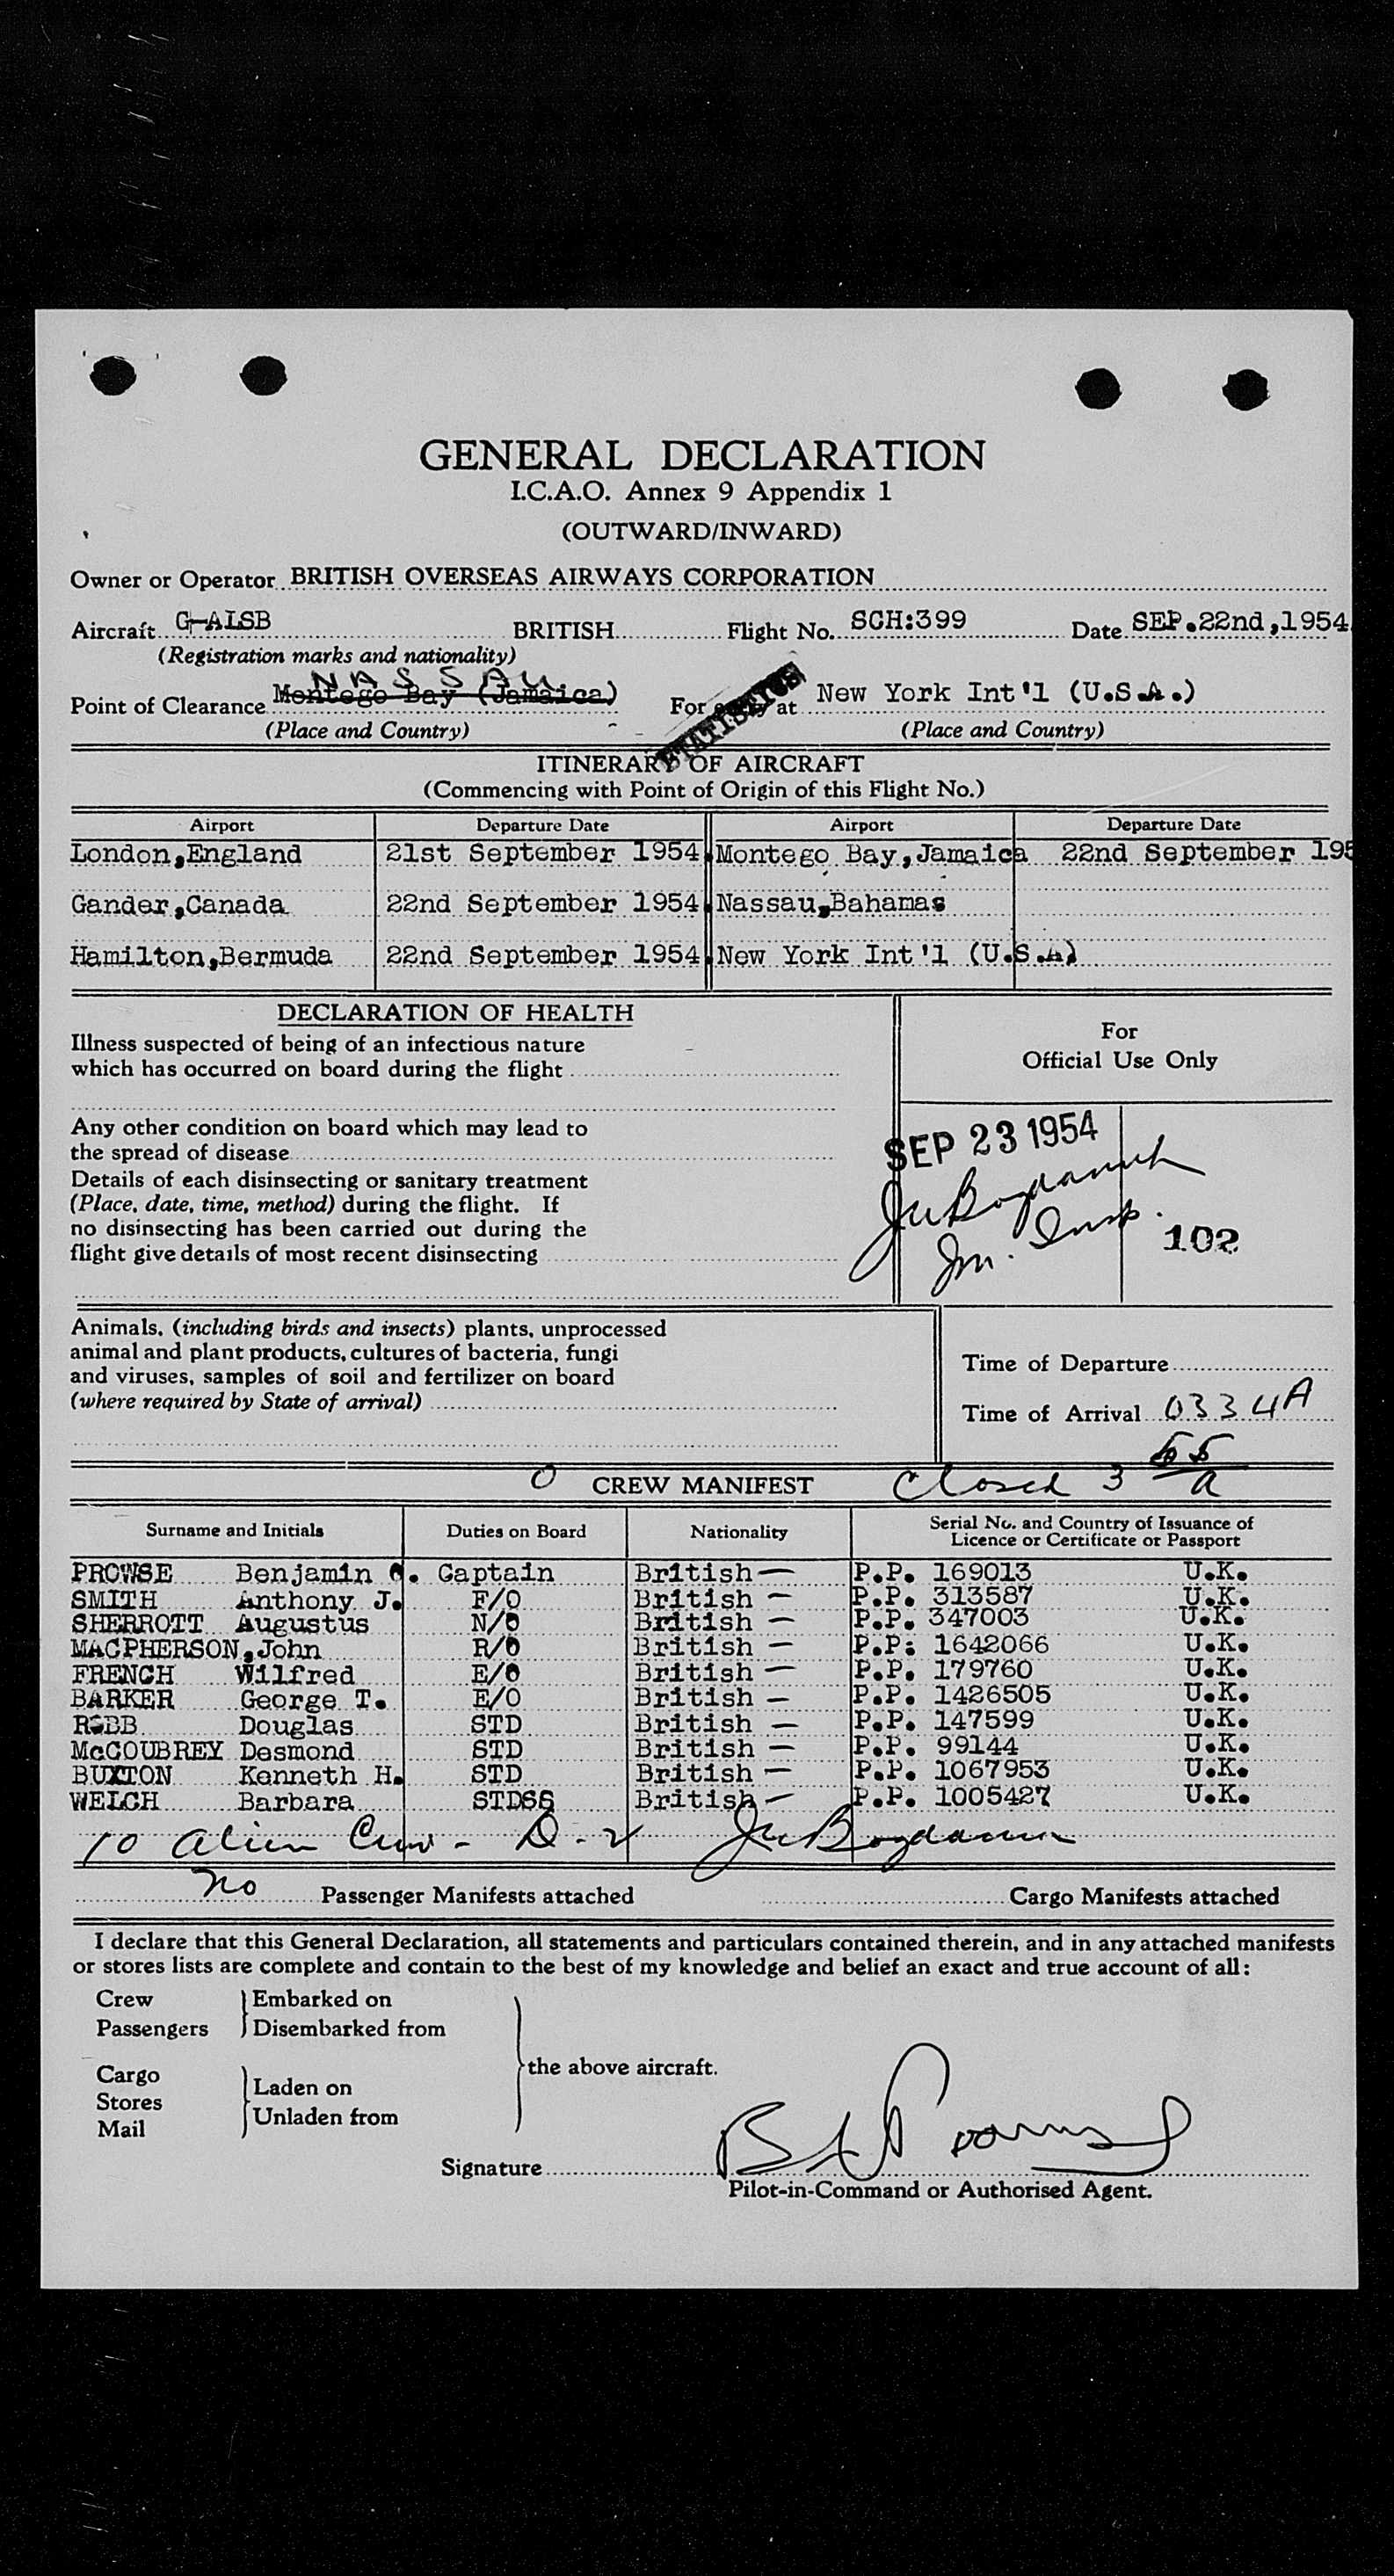 GENERAL DECLARATION
I.C.A.O. Annex 9 Appendix 1
(OUTWARD/INWARD)
Owner or Operator BRITISH OVERSEAS AIRWAYS CORPORATION
Aircraft G-ALSB BRITISH Flight No. SCH:399 Date SEP.22nd,1954
(Registration marks and nationality)
NASSAU
Point of Clearance Montego Bay (Jamaica) For at New York Int'l (U.S.A.)
STATISTICS
(Place and Country) (Place and Country)
ITINERARY OF AIRCRAFT
(Commencing with Point of Origin of this Flight No.)
Airport Departure Date Airport Departure Date
London,England 21st September 1954. Montego Bay,Jamaica 22nd September 195
Gander,Canada 22nd September 1954. Nassau,Bahamas
Hamilton,Bermuda 22nd September 1954. New York Int'l (U.S.A)
DECLARATION OF HEALTH
Illness suspected of being of an infectious nature
which has occurred on board during the flight
Any other condition on board which may lead to
the spread of disease
Details of each disinsecting or sanitary treatment
(Place, date, time, method) during the flight. If
no disinsecting has been carried out during the
flight give details of most recent disinsecting
For
Official Use Only
SEP 23 1954
Im. Insp.
102
Animals, (including birds and insects) plants, unprocessed
animal and plant products, cultures of bacteria, fungi
and viruses, samples of soil and fertilizer on board
(where required by State of arrival)
Time of Departure
Time of Arrival 0334A
0 CREW MANIFEST Closed 3 55/a
Surname and Initials Duties on Board Nationality Serial No. and Country of Issuance of
Licence or Certificate or Passport
PROWSE Benjamin Captain British — P.P. 169013 U.K.
SMITH Anthony J. F/O British — P.P. 313587 U.K.
SHERROTT Augustus N/O British — P.P. 347003 U.K.
MACPHERSON,John R/O British — P.P: 1642066 U.K.
FRENCH Wilfred E/O British — P.P. 179760 U.K.
BARKER George T. E/O British — P.P. 1426505 U.K.
ROBB Douglas STD British — P.P. 147599 U.K.
McCOUBREY Desmond STD British — P.P. 99144 U.K.
BUXTON Kenneth H. STD British — P.P. 1067953 U.K.
WELCH Barbara STDSS British — P.P. 1005427 U.K.
10 alien Crew - D-2
no Passenger Manifests attached Cargo Manifests attached
I declare that this General Declaration, all statements and particulars contained therein, and in any attached manifests
or stores lists are complete and contain to the best of my knowledge and belief an exact and true account of all:
Crew Embarked on
Passengers Disembarked from
the above aircraft.
Cargo
Stores Laden on
Mail Unladen from
Signature
Pilot-in-Command or Authorised Agent.